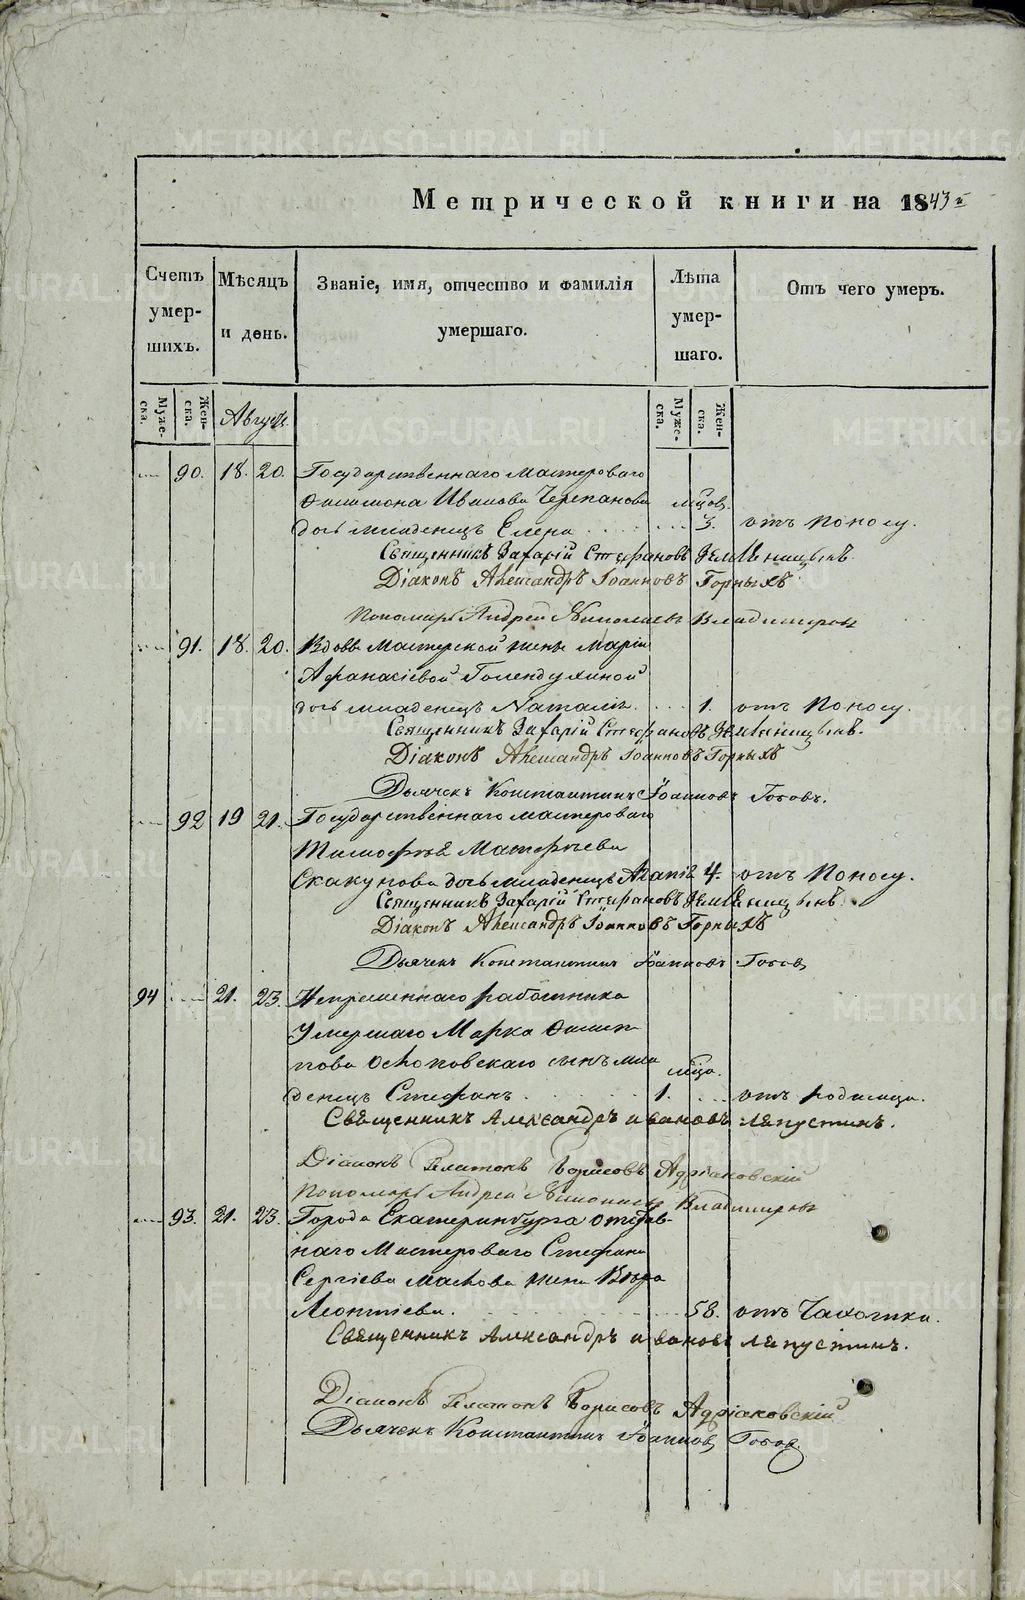 Метрической книги на 1843й
Счетъ умер-шихъ.
Мѣсяцъ и день.
Званіе, имя, отчество и фамилія умершаго.
Лѣта умер-шаго.
Отъ чего умеръ.
Муже-ска. Жен-ска. Августъ. Муже-ска. Жен-ска.
90. 18. 20. Государственнаго Мастероваго
Филимона Иванова Черепанова мѣсяцов.
дочь младенецъ Елена 3. отъ Поносу.
Священникъ Захарій Стефановъ Земленицынъ.
Діаконъ Александръ Іоанновъ Горныхъ
Пономарь Андрей Николаевъ Владимировъ
91. 18. 20. Вдовы Мастерской жены Маріи
Афанасіевой Голендухиной
дочь младенецъ Наталія. 1. отъ Поносу.
Священникъ Захарій Стефановъ Земленицынъ.
Діаконъ Александръ Іоанновъ Горныхъ
Дьячекъ Константинъ Іоанновъ Гобовъ.
92 19 21. Государственнаго мастероваго
Тимофея Матфѣева
Скакунова дочь младенецъ 4. отъ Поносу.
Священникъ Захарій Стефановъ Земленицынъ.
Діаконъ Александръ Іоанновъ Горныхъ
Дьячекъ Константинъ Іоанновъ Гобовъ
94 21. 23. Непременнаго работника
Умершаго Марка Филип-
пова Осколовскаго сынъ мла
денецъ Стефанъ. 1. отъ родимца.
Священникъ Александръ Ивановъ Ляпустинъ.
Діаконъ Платонъ Борисовъ Адріановскій
Пономарь Андрей Николаевъ Владимировъ
93. 21. 23. Города Екатеринбурга отстав-
наго Мастероваго Стефана
Сергіева Маслова жена Вѣра
Леонтіева. 58. отъ Чахотки.
Священникъ Александръ Ивановъ Ляпустинъ.
Діаконъ Платонъ Борисовъ Адріановскій
Дьячекъ Константинъ Іоанновъ Гобовъ.
METRIKI.GASO-URAL.RU